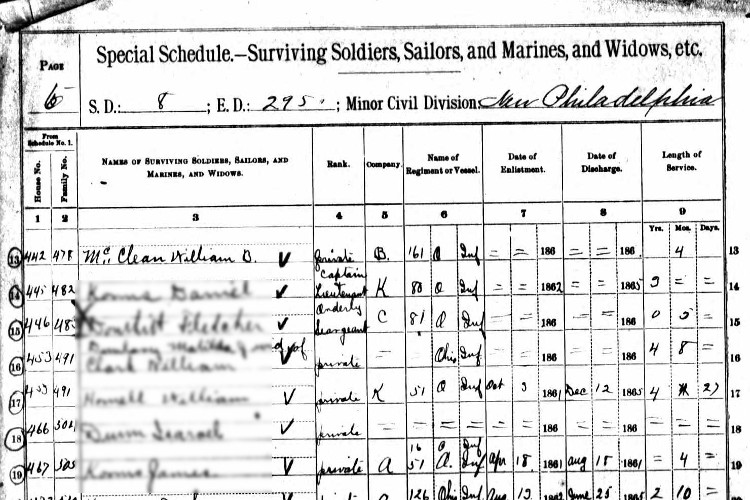 PAGE
6
Special Schedule.—Surviving Soldiers, Sailors, and Marines, and Widows, etc.
S. D.: 8 ; E. D.: 295 ; Minor Civil Division: New Philadelphia
From Schedule No. 1.
House No.
Family No.
NAMES OF SURVIVING SOLDIERS, SAILORS, AND
MARINES, AND WIDOWS.
Rank.
Company.
Name of
Regiment or Vessel.
Date of
Enlistment.
Date of
Discharge.
Length of
Service.
1 2 3 4 5 6 7 8 9
Yrs. Mos. Days.
13 442 478 Mc Clean William D. private B. 161 O Inf = = 186 = = 186 4 13
Captain
14 445 482 Daniel Lieutenant K 80 O Inf = = 1862 = = 1865 3 = = 14
Orderly
15 446 Fletcher Seargeant C 81 O Inf = = 186 = = 186 15
16 453 491 Clark William private = Ohio Inf = = 186 = = 186 4 8 = 16
17 491 Howell William private K 51 O Inf Oct 3 1861 Dec 12 1865 4 27 17
18 466 private = = = = = = 186 = = 186 = = = 18
16 O Inf
19 467 505 James private A 51 O. Inf Apr 18 1861 Aug 18 1861 = 4 = 19
126 Ohio Inf Aug 1862 June 25 2 10 =